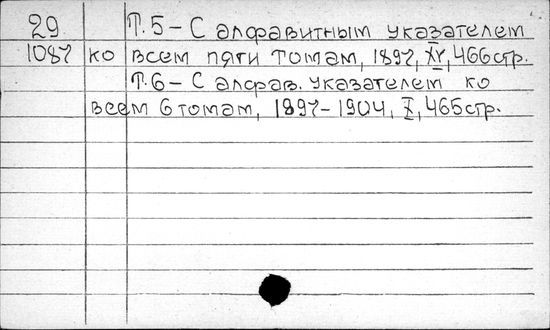 29 Т. 5 – С алфавитным указателем
1087 ко всем пяти томам, 1897, XV, 466 стр.
Т. 6 – С алфав. указателем ко
всем 6 томам, 1897-1904, X, 465 стр.